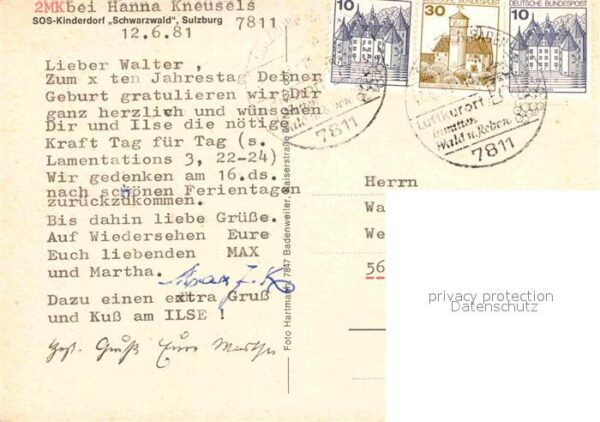 2MK bei Hanna Kneusels
SOS-Kinderdorf „Schwarzwald", Sulzburg
7811
12.6.81
Lieber Walter ,
Zum x ten Jahrestag Deiner
Geburt gratulieren wir Dir
ganz herzlich und wünschen
Dir und Ilse die nötige
Kraft Tag für Tag (s.
Lamentations 3, 22-24)
Wir gedenken am 16.ds.
nach schönen Ferientagen
zurückzukommen.
Bis dahin liebe Grüße.
Auf Wiedersehen Eure
Euch liebenden MAX
und Martha.
Dazu einen extra Gruß
und Kuß am ILSE !
Gruß Eure Martha
Foto Hartmann, 7847 Badenweiler, Kaiserstraße
10 DEUTSCHE BUNDESPOST
30 DEUTSCHE BUNDESPOST
10 DEUTSCHE BUNDESPOST
Wald u. Reben
7811
Luftkurort
inmitten
Wald u. Reben
7811
Herrn
Wa
We
56
privacy protection
Datenschutz